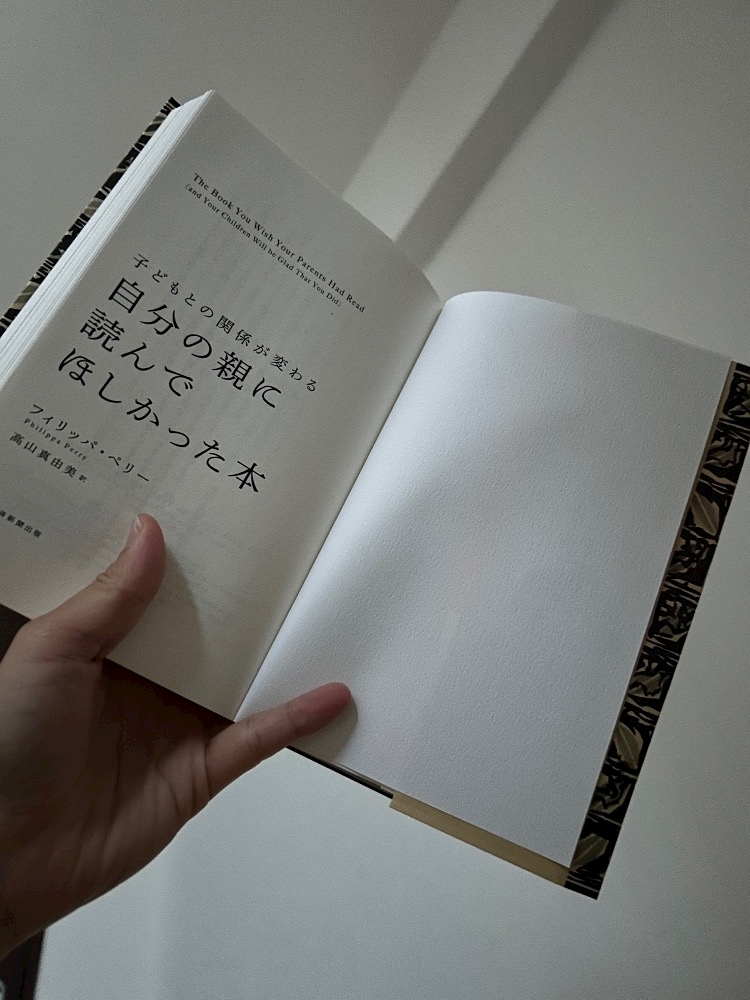 The Book You Wish Your Parents Had Read
(and Your Children Will be Glad That You Did)
子どもとの関係が変わる
自分の親に
読んで
ほしかった本
フィリッパ・ペリー
Philippa Perry
高山真由美 訳
新聞出版